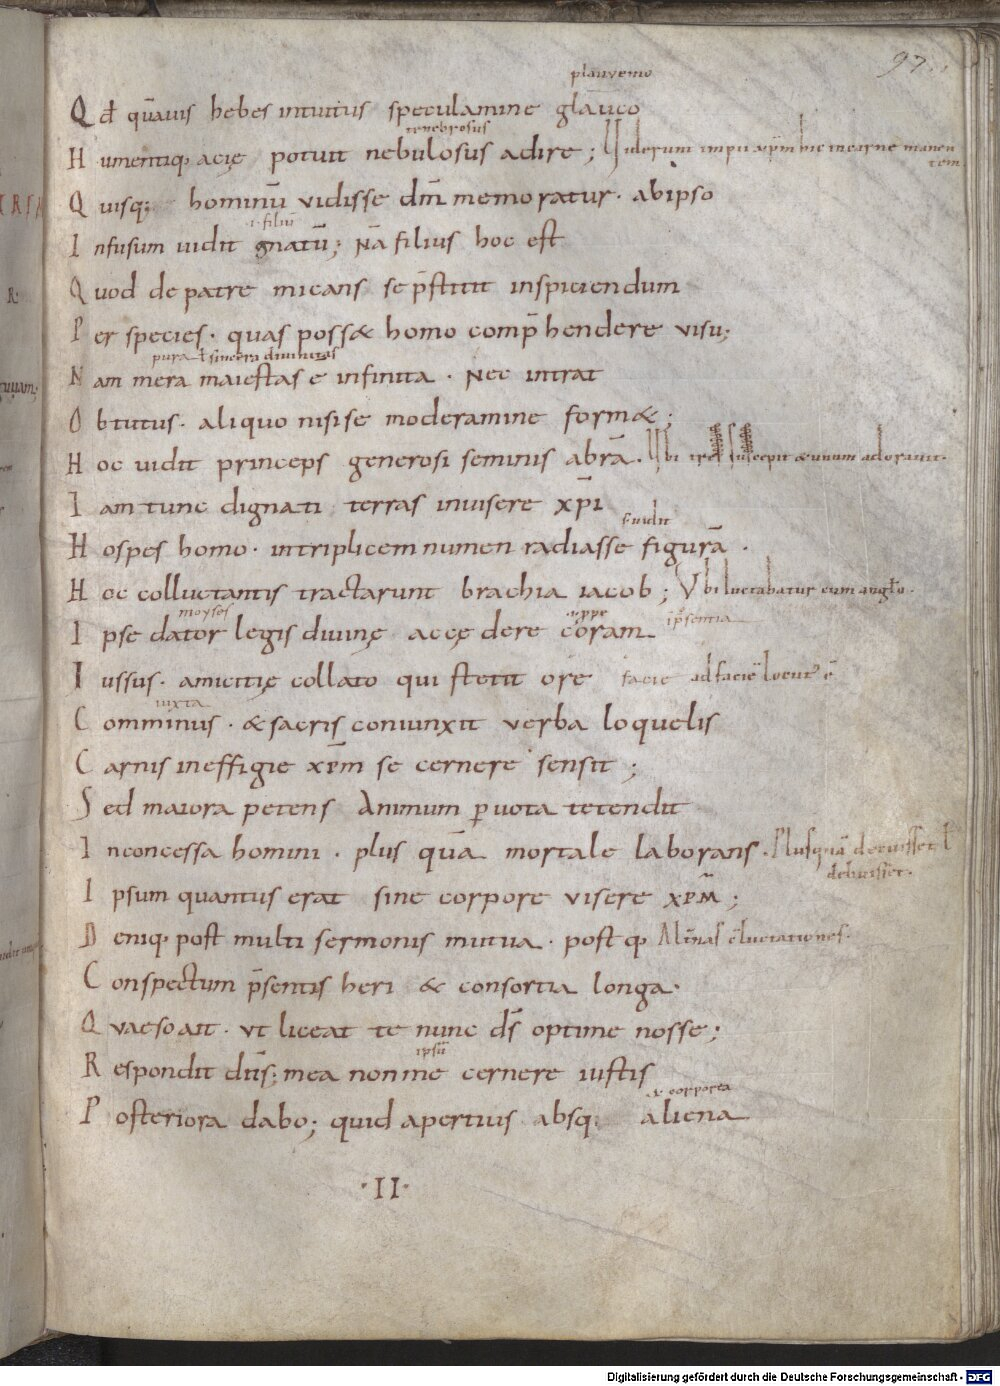 97
plauvemo
Qd quāuis hebes intuitus speculamine glauco
tenebrosus
Humentiq; acię potuit nebulosus adire; Uiderunt impii xp̄m hic in carne manen
tem
Quisq; hominū vidisse dm̄ memoratur · ab ipso
·i· filiū
Infusum uidit gnatū; Nā filius hoc est
Quod de patre micans se p̄stitit inspiciendum
Per species · quas posset homo compręhendere visu;
pura ł sincera diuinitas
Nam mera maiestas ē infinita · Nec intrat
Obtutus · aliquo nisi se moderamine formæ;
Hoc uidit princeps generosi seminis abrā · Ubi tres suscepit & unum adorauit·
Iam tunc dignati terras inuisere xp̄i
s· uidit
Hospes homo · in triplicem numen radiasse figurā ·
Hoc colluctantis tractarunt brachia iacob; Ubi luctabatur cum anglo·
moyses prope in p̄sentia
Ipse dator legis diuinę acędere coram
Iussus · amicitię collato qui stetit ore facie ad faciē locut' ē
iuxta
Comminus · & sacris coniunxit verba loquelis
Carnis in effigie xp̄m se cernere sensit;
Sed maiora petens Animum p uota tetendit
Inconcessa homini · plus quā mortale laborans · Plusquā decuisset ł
debuisset·
Ipsum quantus erat sine corpore visere xp̄m;
Deniq; post multi sermonis mutua · postq;
Conspectum p̄sentis heri & consortia longa·
Quaeso ait · ut liceat te nunc ds̄ optime nosse;
ipsū
Respondit dn̄s; mea non me cernere iustis
corporea
Posteriora dabo; quid apertius absq; aliena
·II·
Digitalisierung gefördert durch die Deutsche Forschungsgemeinschaft - DFG